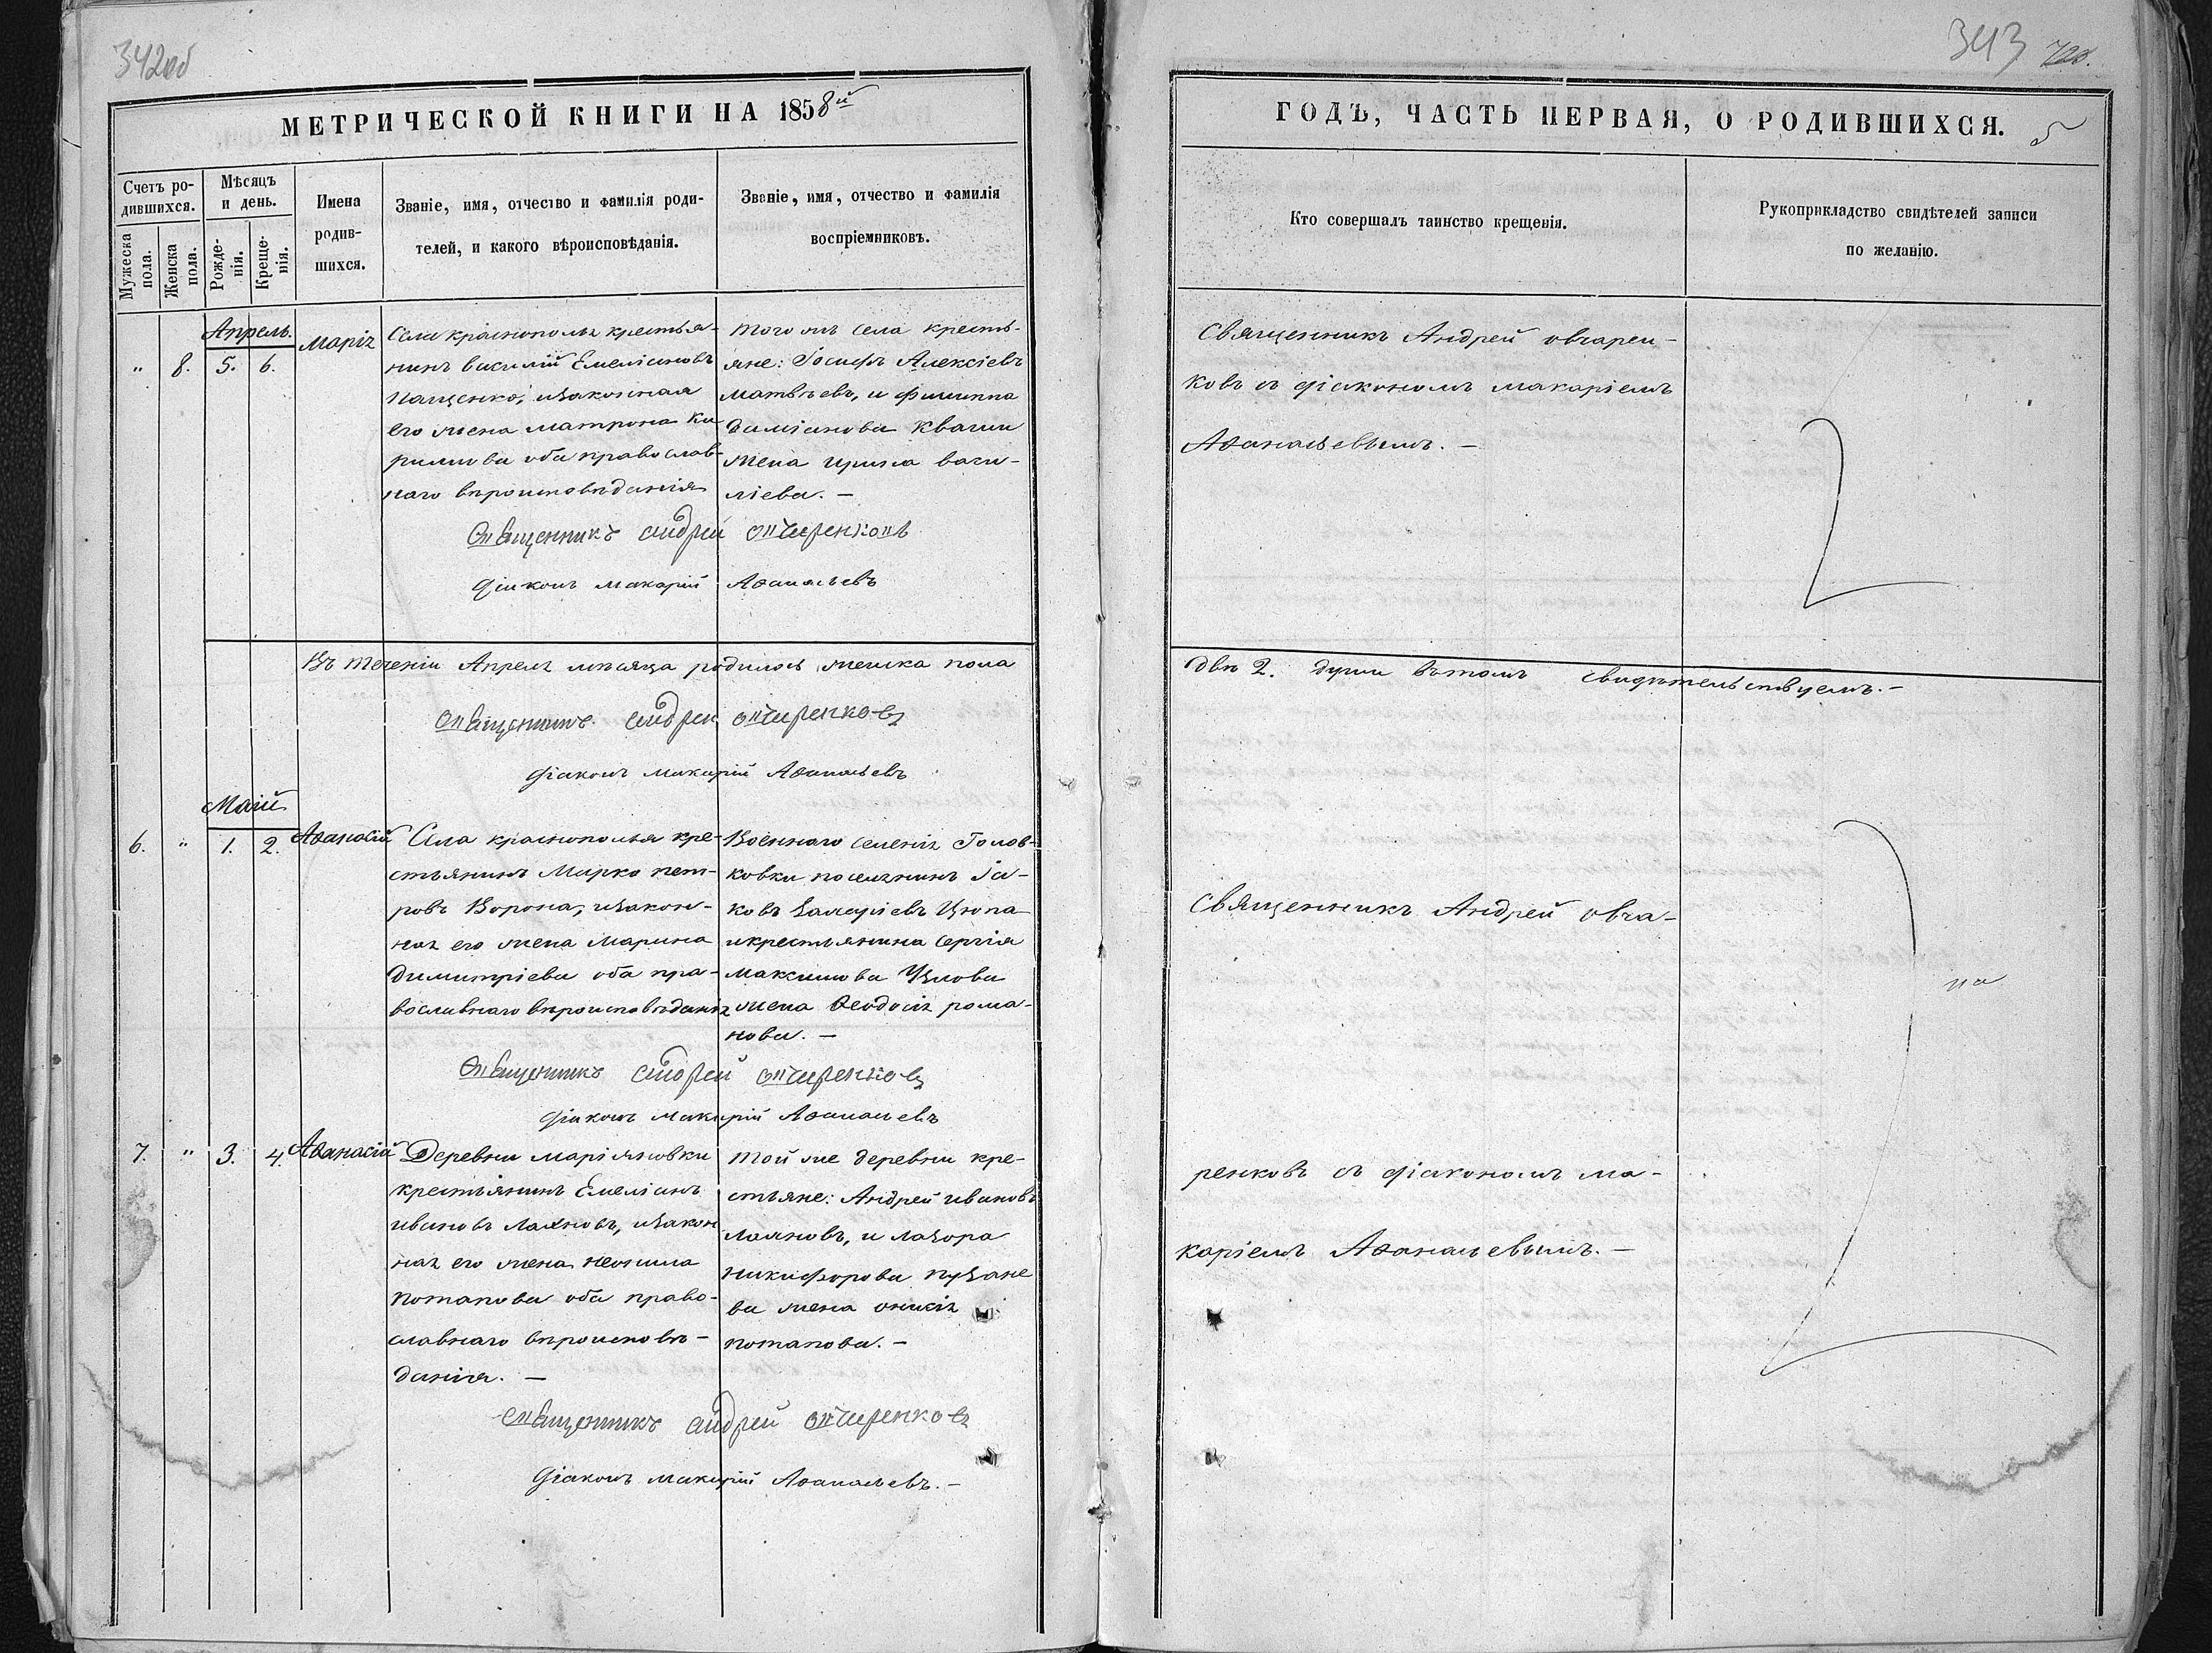 342об
МЕТРИЧЕСКОЙ КНИГИ НА 1858й
Счетъ ро-
дившихся.
Мужеска
пола.
Женска
пола.
Мѣсяцъ
и день.
Рожде-
нія.
Креще-
нія.
Имена
родив-
шихся.
Званіе, имя, отчество и фамилія роди-
телей, и какого вѣроисповѣданія.
Званіе, имя, отчество и фамилія
воспріемниковъ.
Апрель.
" 8. 5. 6.
Марія
Села краснополья крестья-
нинъ василій Емеліановъ
Пащенко, изаконная
его жена матрона Ки
рилова оба православ-
наго вѣроисповѣданія
того жъ села кресть-
яне: Іосифъ Алексіевъ
матвѣевъ, и филиппа
даміанова Кваши
жена ирина васи-
ліева. –
Священникъ андрей овчаренковъ
діаконъ макарій Аѳанасьевъ
Въ теченіи Апреля мѣсяца родилось женска пола
Священникъ андрей овчаренковъ
діаконъ макарій Аѳанасьевъ
Маій
6. " 1. 2.
Аѳанасій
Села краснополья кре-
стьянинъ Марко пет-
ровъ Ворона, изакон-
ная его жена Марина
димитріева оба пра-
вославнаго вѣроисповѣданія
Военнаго селенія Голов-
ковки поселянинъ Іа-
ковъ Цюпа
икрестьянина Сергія
максимова
жена Ѳеодосія рома-
нова. –
Священникъ андрей овчаренковъ
діаконъ макарій Аѳанасьевъ
7. " 3. 4.
Аѳанасій
Деревни маріяновки
крестьянинъ Емеліанъ
ивановъ изакон
ная его жена неонила
потапова оба право-
славнаго вѣроисповѣ-
данія. –
той же деревни кре-
стьяне: Андрей ивановъ
и лазора
никифорова пузане
ва жена
потапова. –
Священникъ андрей овчаренковъ
діаконъ макарій Аѳанасьевъ. –
343
ГОДЪ, ЧАСТЬ ПЕРВАЯ, О РОДИВШИХСЯ.
5
Кто совершалъ таинство крещенія.
Рукоприкладство свидѣтелей записи
по желанію.
Священникъ Андрей овчарен-
ковъ съ діакономъ макаріемъ
Аѳанасьевымъ. –
двѣ 2. души вътомъ свидѣтельствуемъ. –
Священникъ Андрей овча-
ренковъ съ діакономъ ма-
каріемъ Аѳанасьевымъ. –